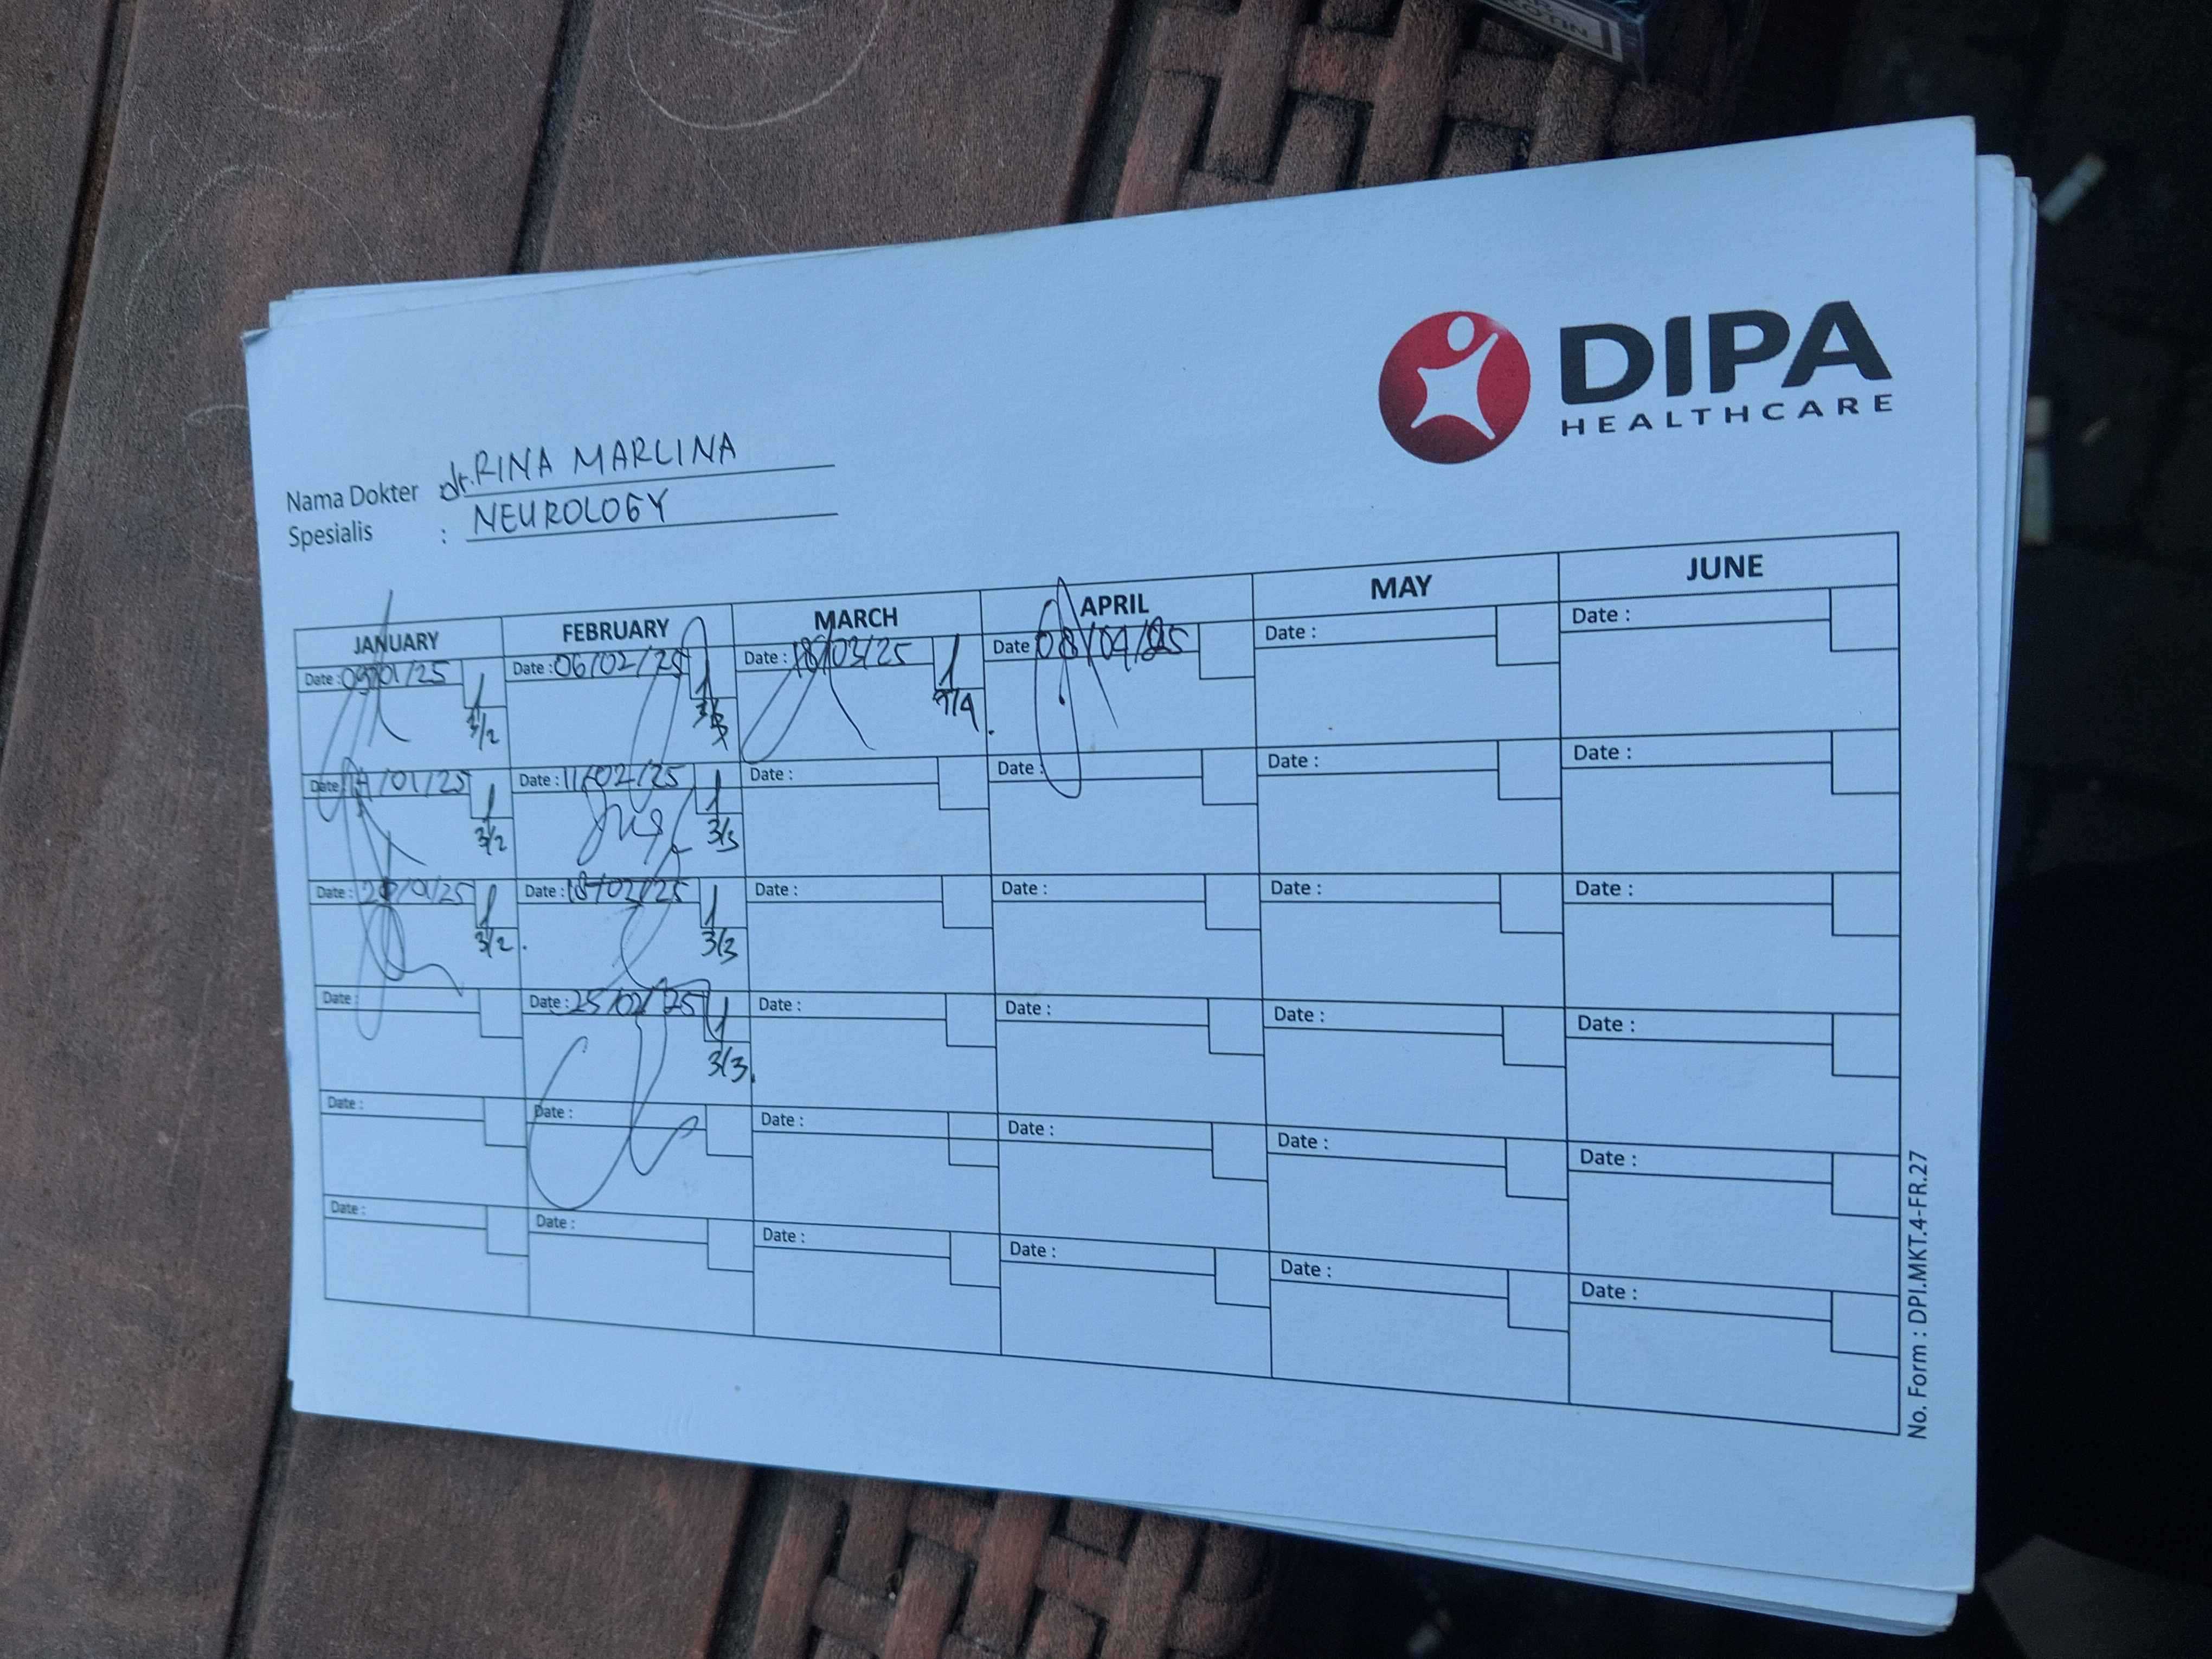 DIPA
HEALTHCARE
Nama Dokter dr. RINA MARLINA
Spesialis : NEUROLOGY
JANUARY FEBRUARY MARCH APRIL MAY JUNE
Date : 09/01/25 Date : 06/02/25 Date : 18/03/25 Date 08/04/25 Date : Date :
3/2 7/4
Date /01/25 Date : 11/02/25 Date : Date : Date : Date :
3/2 3/3
Date : /01/25 Date : 18/02/25 Date : Date : Date : Date :
3/2. 3/3
Date : Date : 25/02/25 Date : Date : Date : Date :
3/3.
Date : Date : Date : Date : Date : Date :
Date : Date : Date : Date : Date : Date :
No. Form : DPI.MKT.4-FR.27